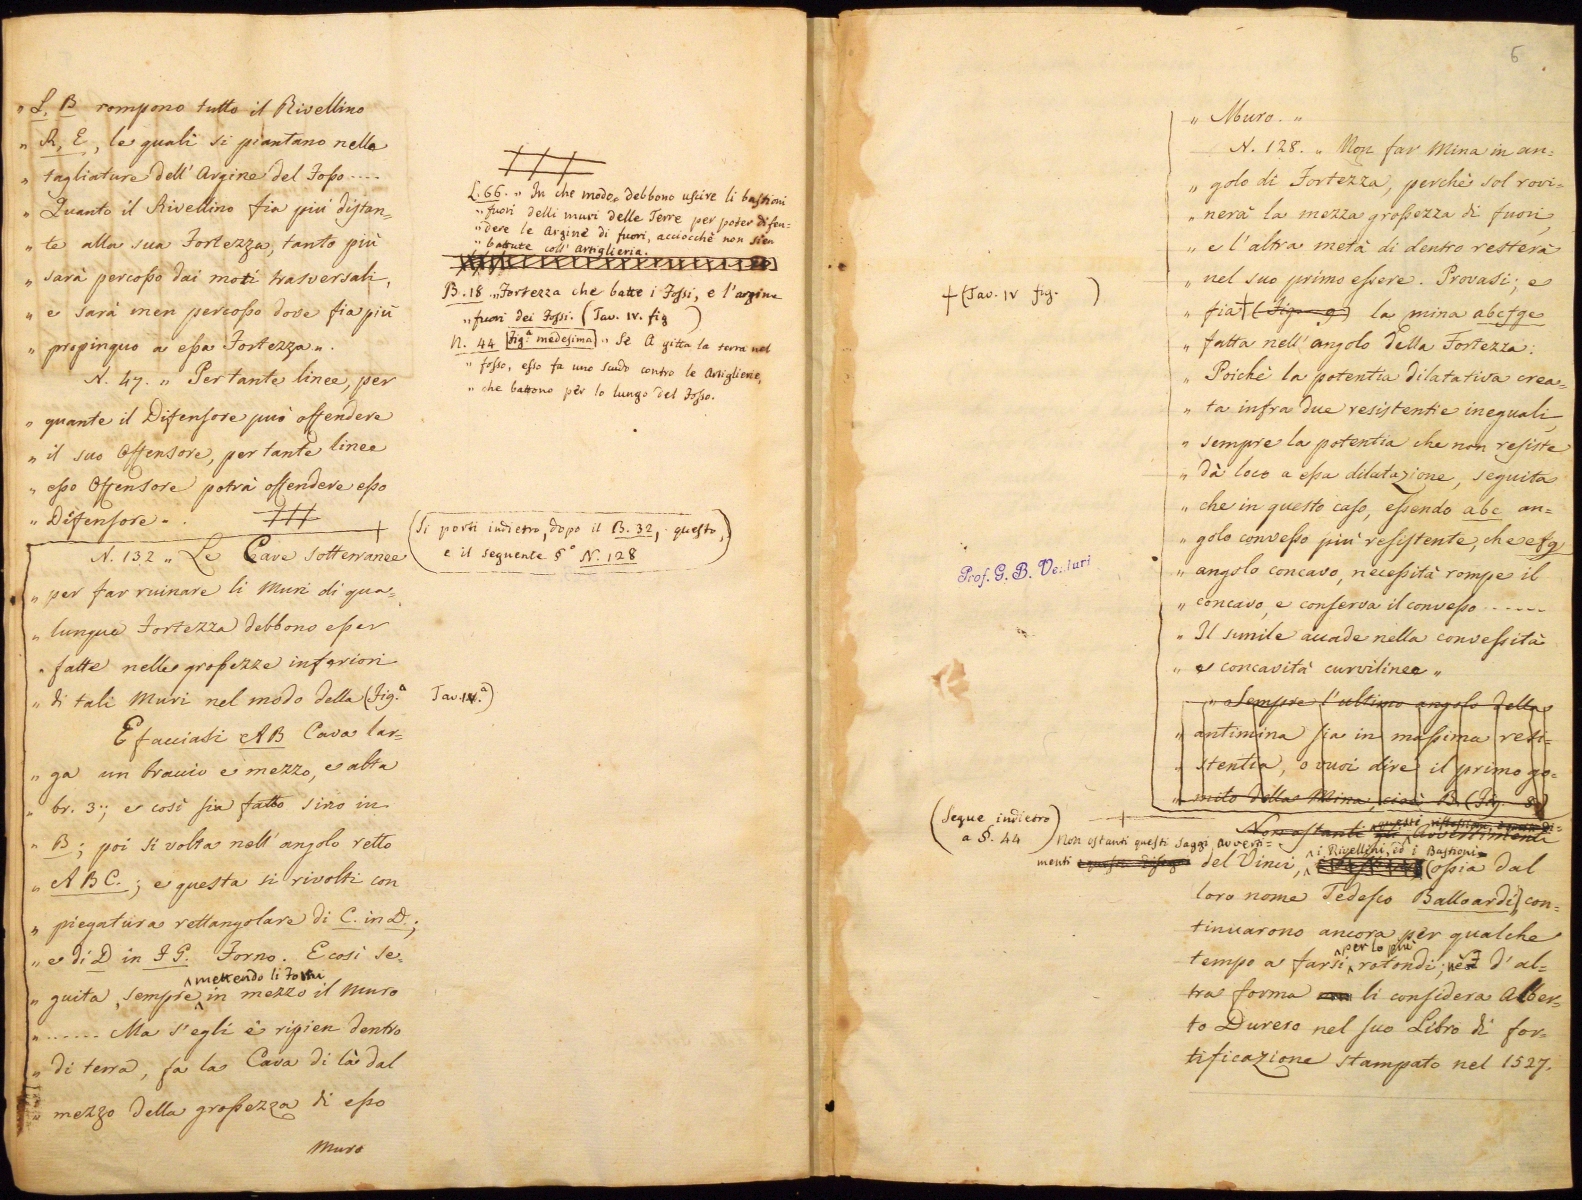 „ L, B rompono tutto il Rivellino
„ R, E, le quali si piantano nella
„ tagliature dell' Argine del Fosso ....
„ Quanto il Rivellino fia più distan=
„ te alla sua Fortezza, tanto più
„ sarà percosso dai moti trasversali,
„ e sarà men percosso dove fia più
„ propinquo a essa Fortezza „.
N. 47. „ Per tante linee, per
„ quante il Difensore può offendere
„ il suo Offensore, per tante linee
„ esso Offensore potrà offendere esso
„ Difensore „.
N. 132 „ Le Cave sotterranee
„ per far ruinare li Muri di qua=
„ lunque Fortezza debbono esser
„ fatte nelle grossezze inferiori
„ di tali Muri nel modo della (Fig.ª Tav. IV.ª)
E facciasi AB Cava lar=
„ ga un braccio e mezzo, e alta
„ br. 3; e così sia fatto sino in
„ B; poi si volta nell' angolo retto
„ ABC.; e questa si rivolti con
„ piegatura rettangolare di C. in D;
„ e di D in FG. Forno. E così se=
mettendo li Forni
„ guita, sempre in mezzo il Muro
„ ...... Ma s'egli è ripien dentro
„ di terra, fa la Cava di là dal
„ mezzo della grossezza di esso
Muro
L. 66. „ In che modo debbono uscire li bastioni
„ fuori delli muri delle Terre per poter difen=
„ dere le Argine di fuori, acciocchè non sien
„ battute coll' Artiglieria.
B. 18 „ Fortezza che batte i Fossi, e l'argine
„ fuori dei Fossi. (Tav. IV. fig )
N. 44 Fig.ª medesima „ Se A gitta la terra nel
„ fosso, esso fa uno scudo contro le Artiglierie,
„ che battono per lo lungo del Fosso.
(Si porti indietro, dopo il B. 32, questo,
e il seguente §° N. 128
5
„ Muro. „
N. 128. „ Non far Mina in an=
„ golo di Fortezza, perchè sol rovi=
„ nerà la mezza grossezza di fuori,
„ e l'altra metà di dentro resterà
„ nel suo primo essere. Provasi; e
+ (Tav. IV fig. )
„ fia + (Fig. 9) la mina abcfge
„ fatta nell' angolo della Fortezza:
„ Poichè la potentia dilatativa crea=
„ ta infra due resistentie ineguali,
„ sempre la potentia che non resiste
„ dà loco a essa dilatazione, seguita
„ che in questo caso, essendo abc an=
„ golo convesso più resistente, che efg
„ angolo concavo, necessità rompe il
„ concavo, e conserva il convesso ......
„ Il simile accade nella convessità
„ e concavità curvilinee „
„ Sempre l'ultimo angolo della
„ antimina sia in massima resi=
„ stentia, o vuoi dire il primo go=
„ mito della Mina, cioè B (Fig. 8)
Prof. G. B. Venturi
(Segue indietro
a §. 44)
Non ostanti gli Avvertimenti
Non ostanti questi saggi, avverti=
i Rivellini, ed i Bastioni
menti del Vinci, (ossia dal
loro nome Tedesco Balloardi) con=
tinuarono ancora per qualche
per lo più
tempo a farsi rotondi; nè d' al=
tra forma li considera Alber=
to Durero nel suo Libro di for=
tificazione stampato nel 1527.